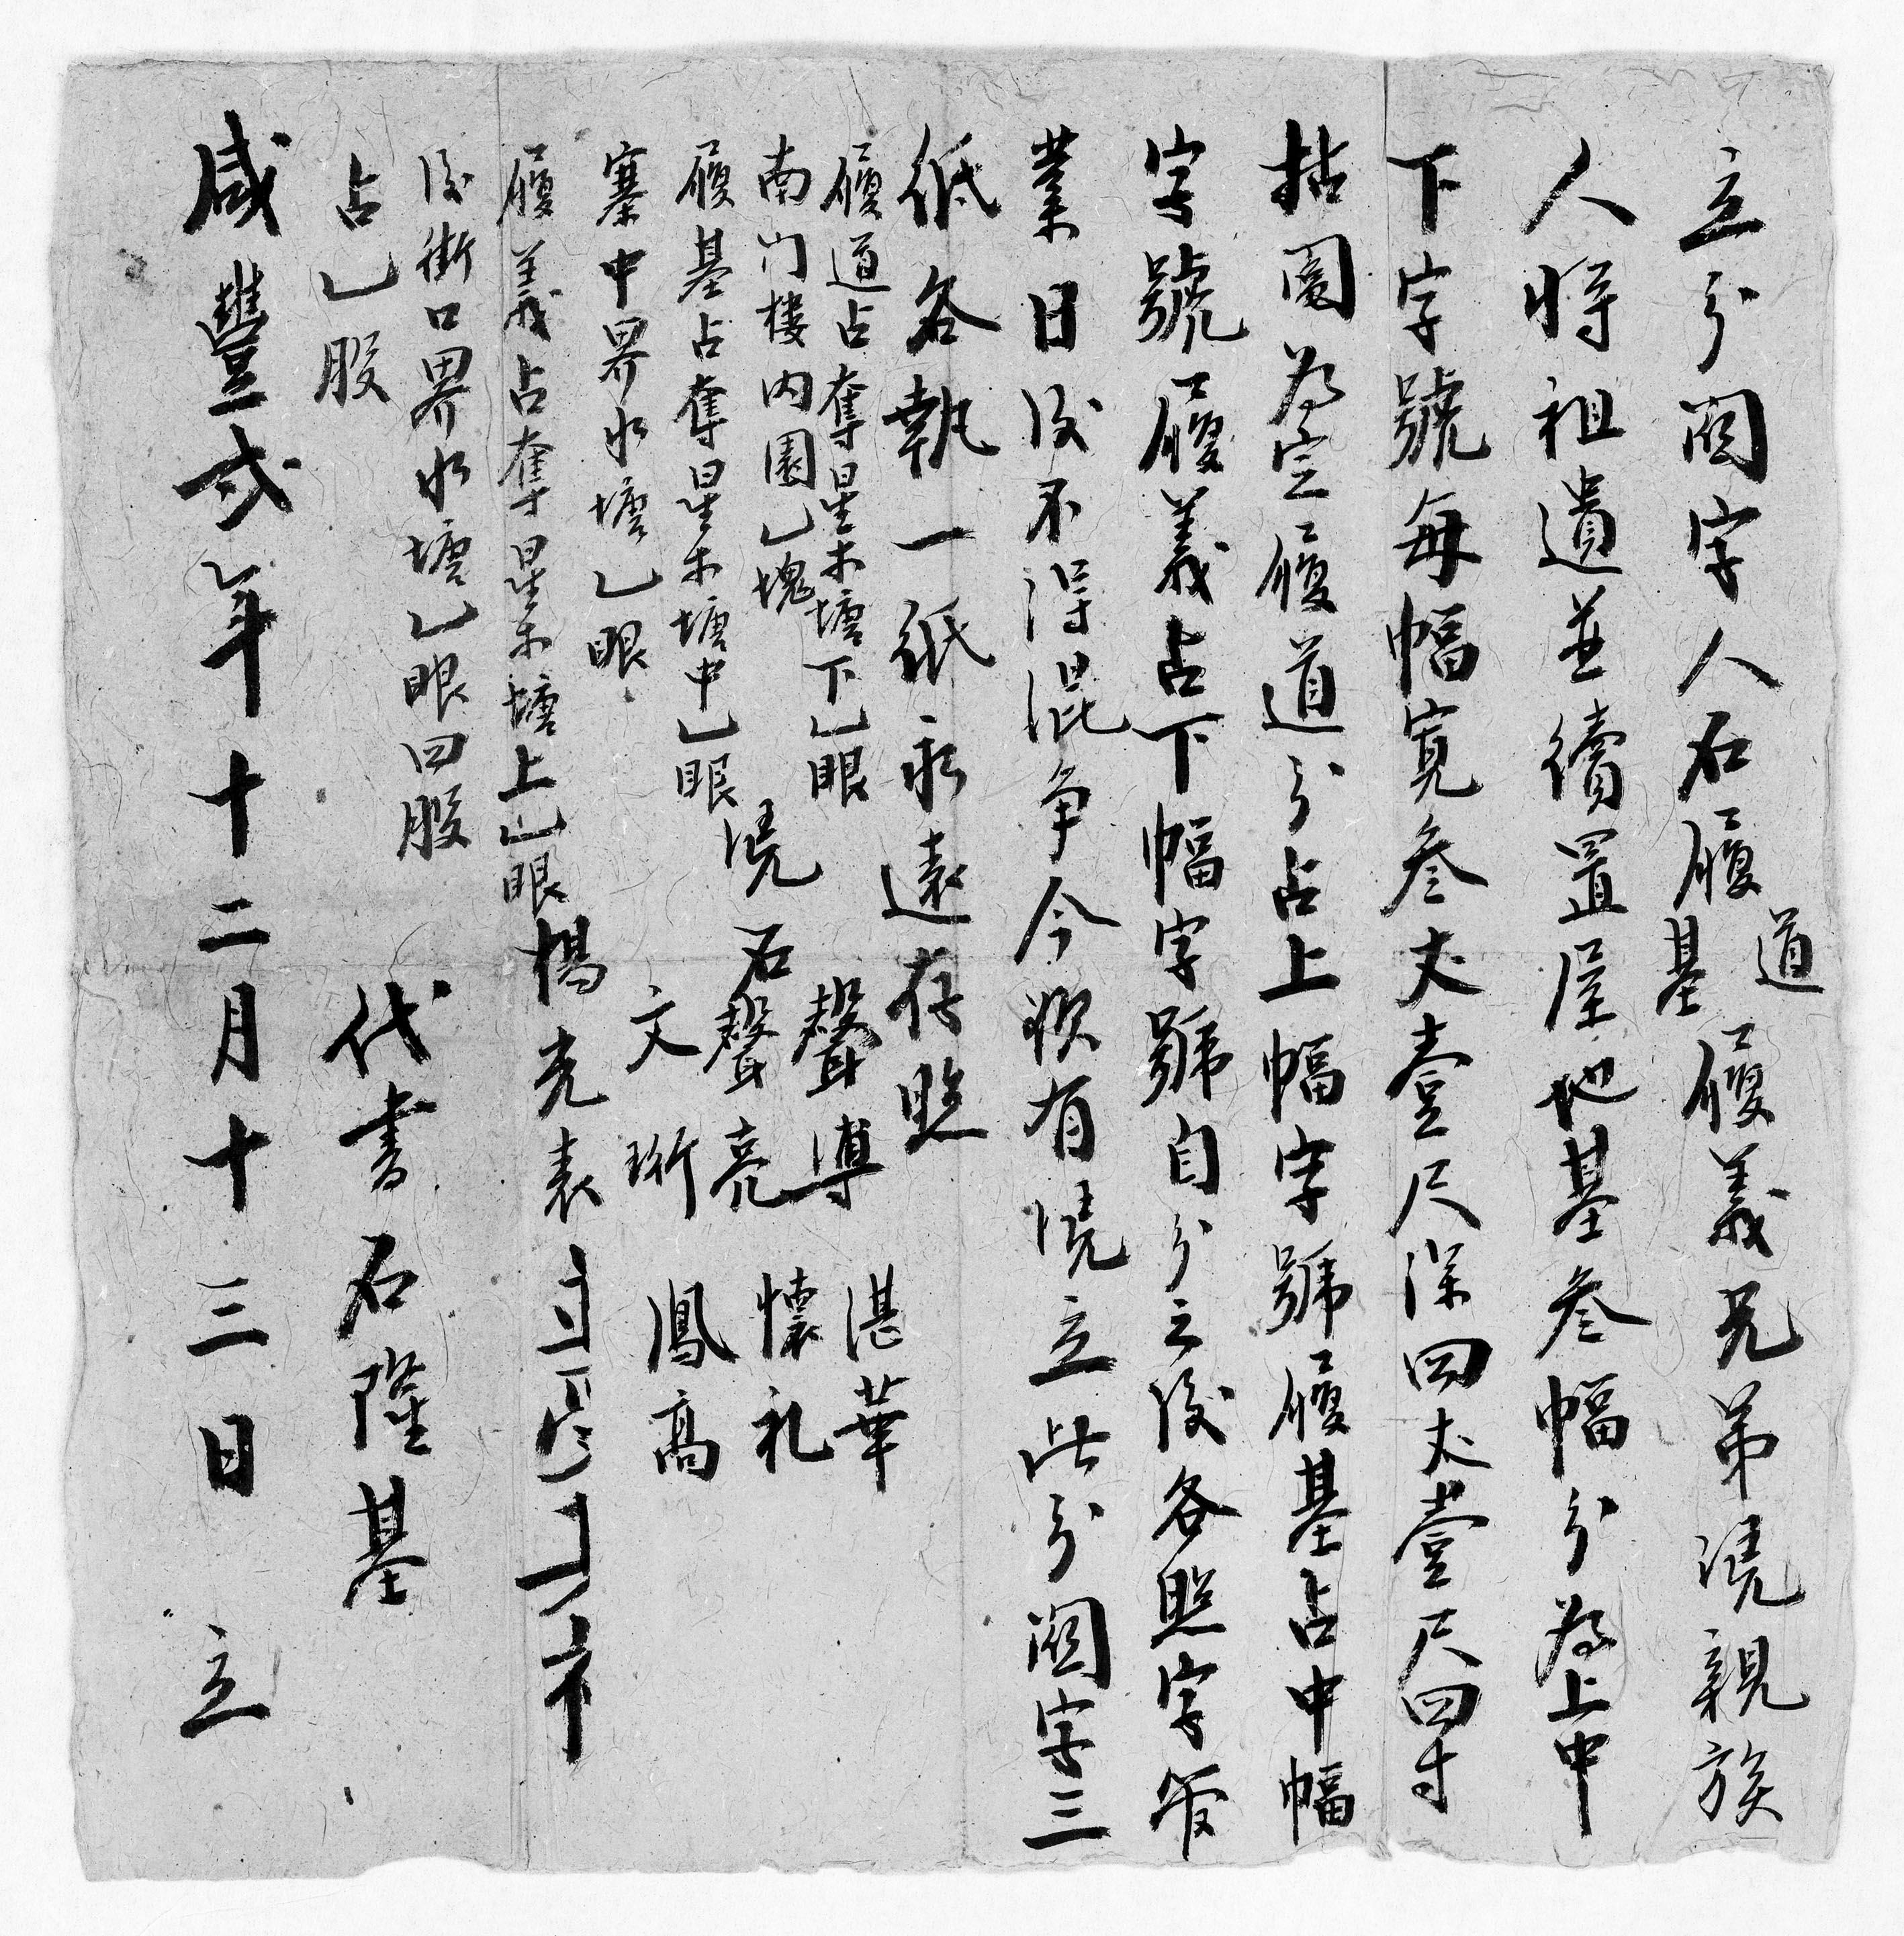 立分関字人石履道基履義兄弟凴親族
人將祖遺並續置屋地基叁幅分為上中
下字號每幅寛叁丈壹尺深四丈壹尺四寸
拈圖為定履道分占上幅字號履基占中幅
字號履義占下幅字號自分之後各照字管
業日後不得混争今欲有凴立此分関字三
紙各執一紙永遠存照
履道占奪星木塘下乙眼
南门楼内園乙塊
履基占奪星木塘中乙眼
寨中界水塘乙眼
履義占奪星木塘上乙眼
後街口界水塘乙眼四股
占乙股
凴 石聲亮 聲博 文珩 湛華 懷礼 鳳髙
楊光表
代書石隆基
咸豐弍年十二月十三日 立